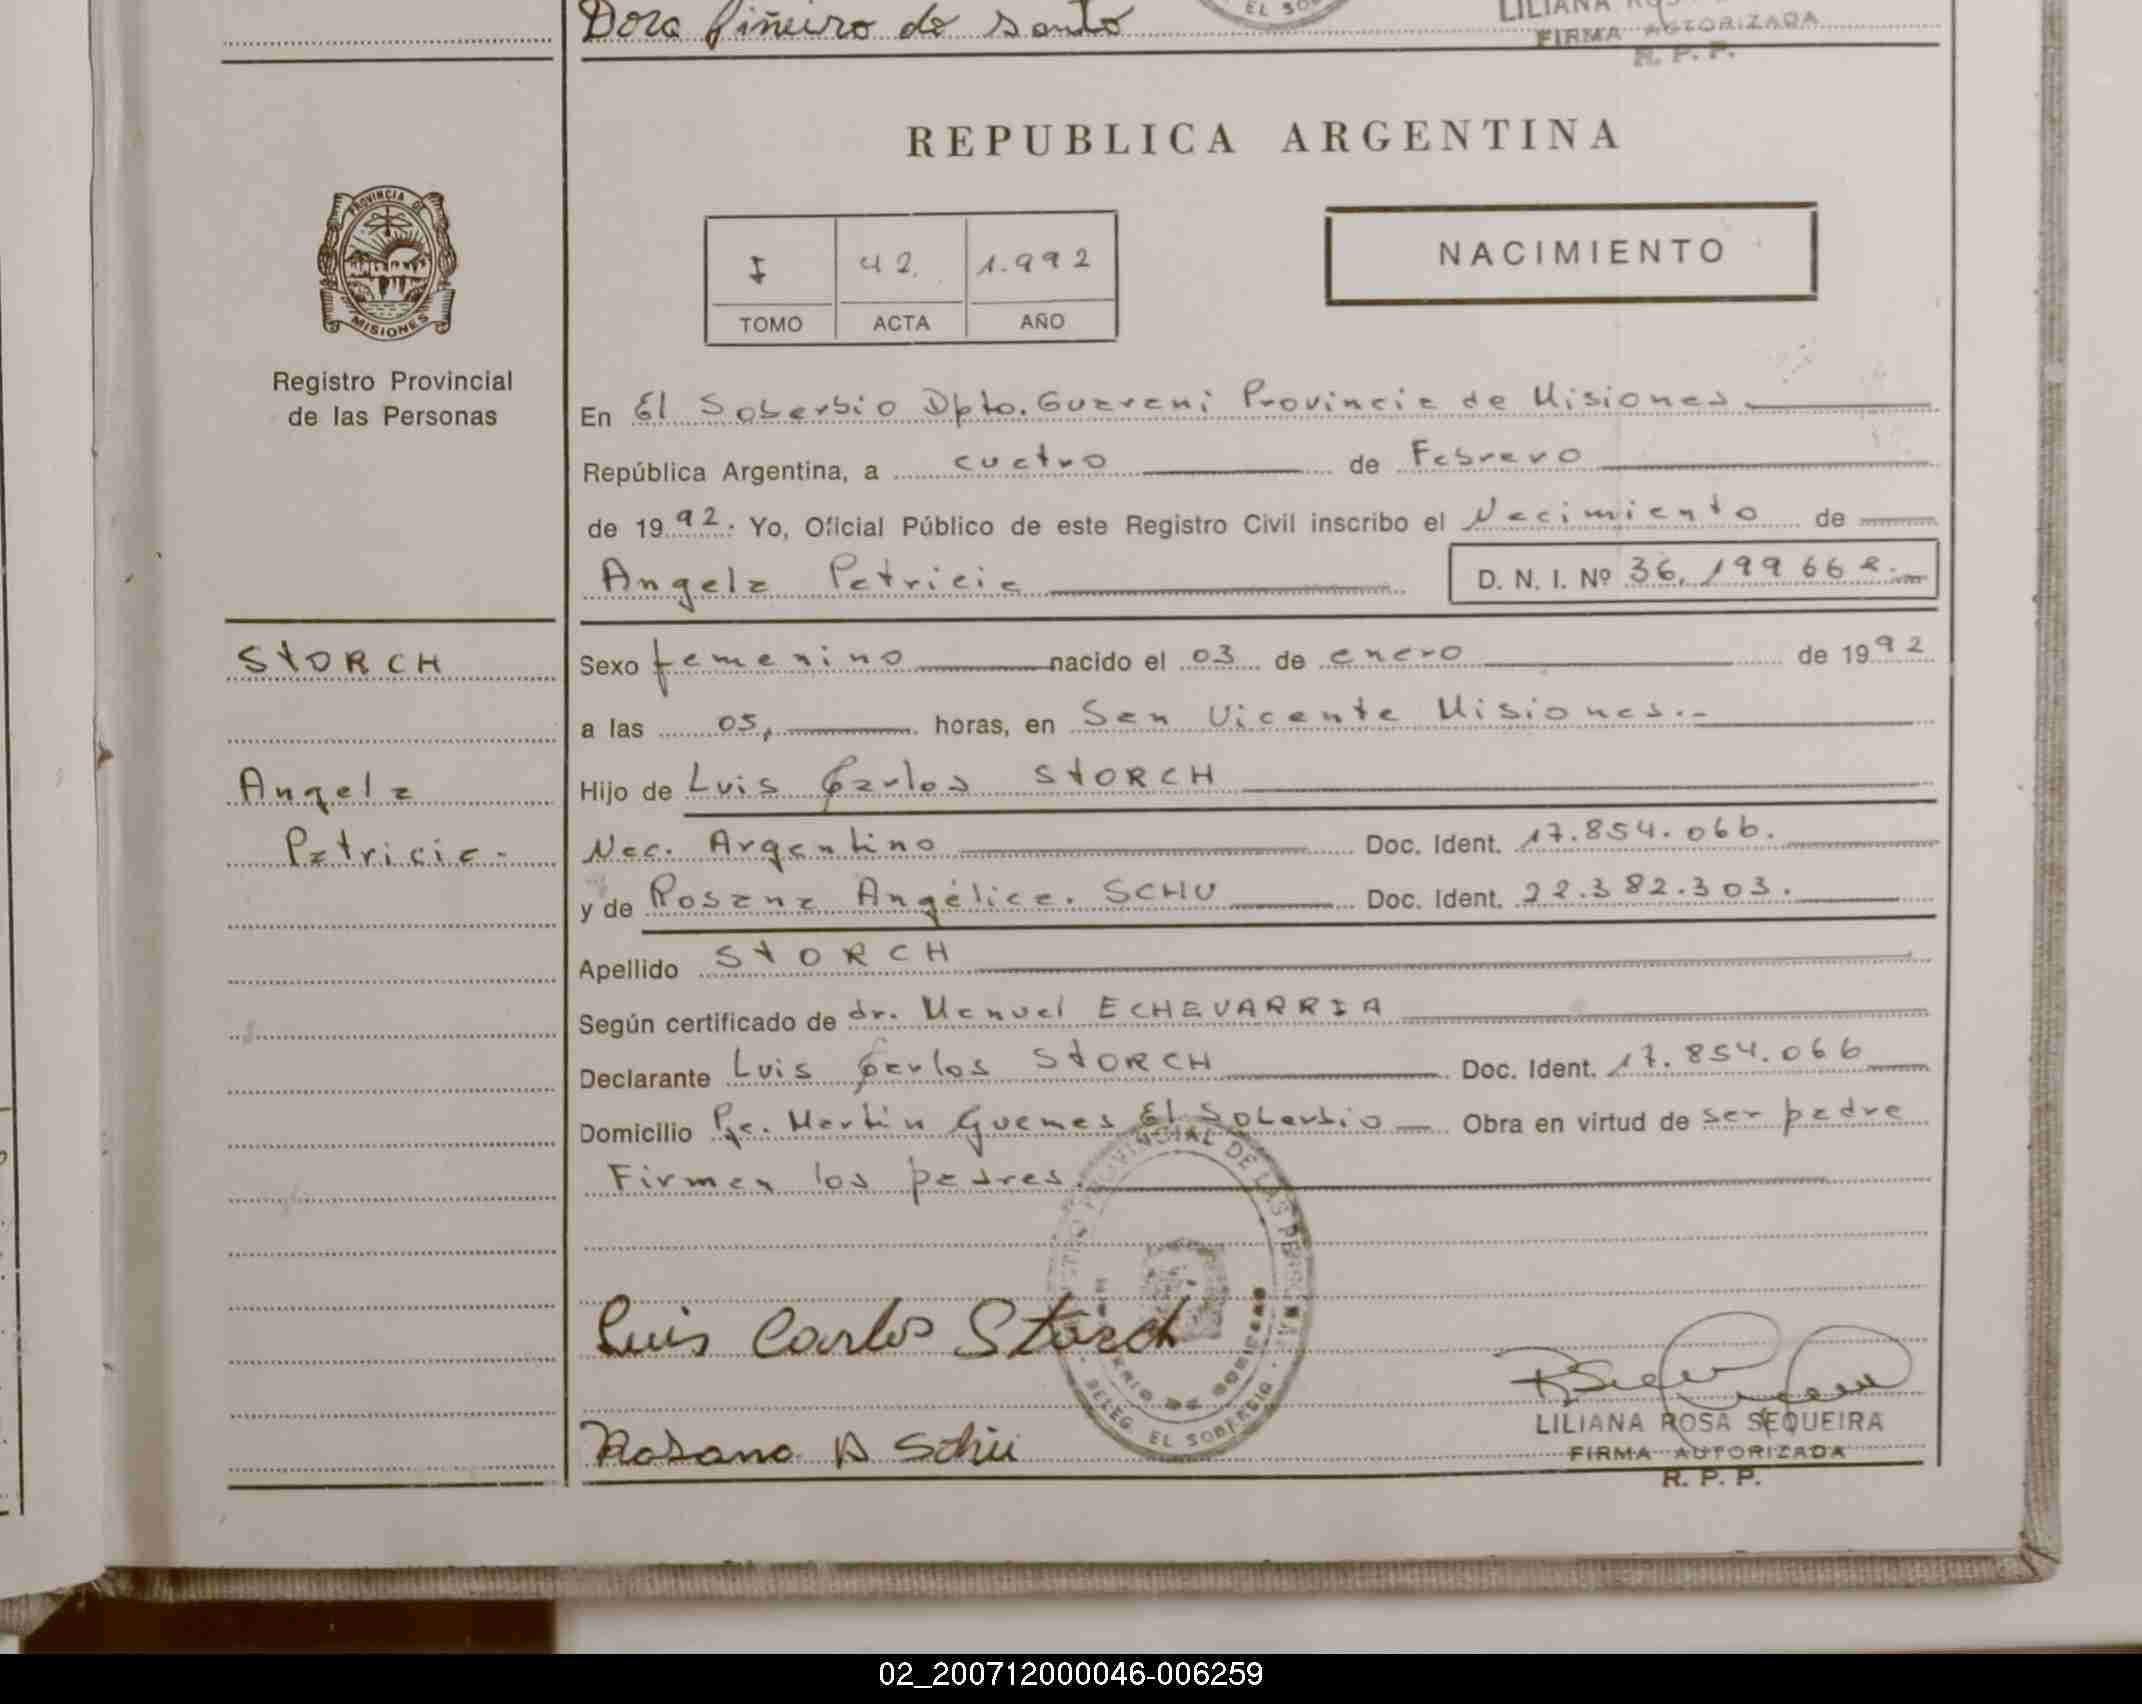 Dora Piñeiro de Santo
FIRMA AUTORIZADA
R. P. P.
REPUBLICA ARGENTINA
PROVINCIA DE
MISIONES
Registro Provincial
de las Personas
I 42 1.992
TOMO ACTA AÑO
NACIMIENTO
En El Soberbio Dpto. Guarani Provincia de Misiones
República Argentina, a cuatro de Febrero
de 1992. Yo, Oficial Público de este Registro Civil inscribo el Nacimiento de
Angela Patricia D. N. I. Nº 36.199662.
STORCH
Angela
Patricia.
Sexo femenino nacido el 03 de enero de 1992
a las 05, horas, en San Vicente Misiones.-
Hijo de Luis Carlos STORCH
Nac. Argentino Doc. Ident. 17.854.066.
y de Rosana Angélica. SCHU Doc. Ident. 22.382.303.
Apellido STORCH
Según certificado de dr. Manuel ECHEVARRIA
Declarante Luis Carlos STORCH Doc. Ident. 17.854.066
Domicilio Pje. Martin Guemes El Soberbio Obra en virtud de ser padre
Firman los padres.
Luis Carlos Storch
Rosana A Schu
LILIANA ROSA SEQUEIRA
FIRMA AUTORIZADA
R. P. P.
02_200712000046-006259